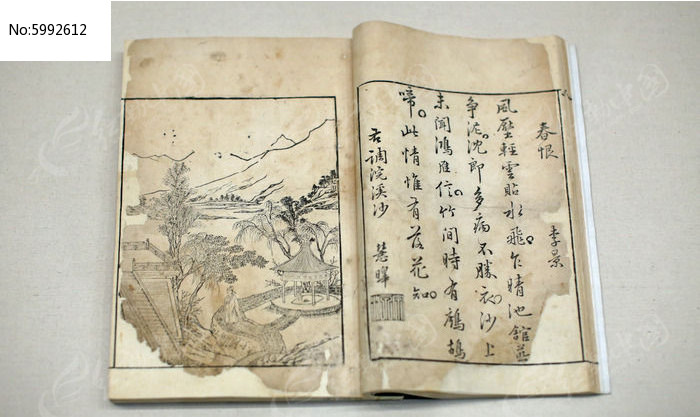 No:5992612
春恨
李景
風壓輕雲貼水飛乍晴池館燕
争泥沈郎多病不勝衣沙上
未聞鴻雁信竹間時有鷓鴣
啼此情惟有落花知
右調浣溪沙